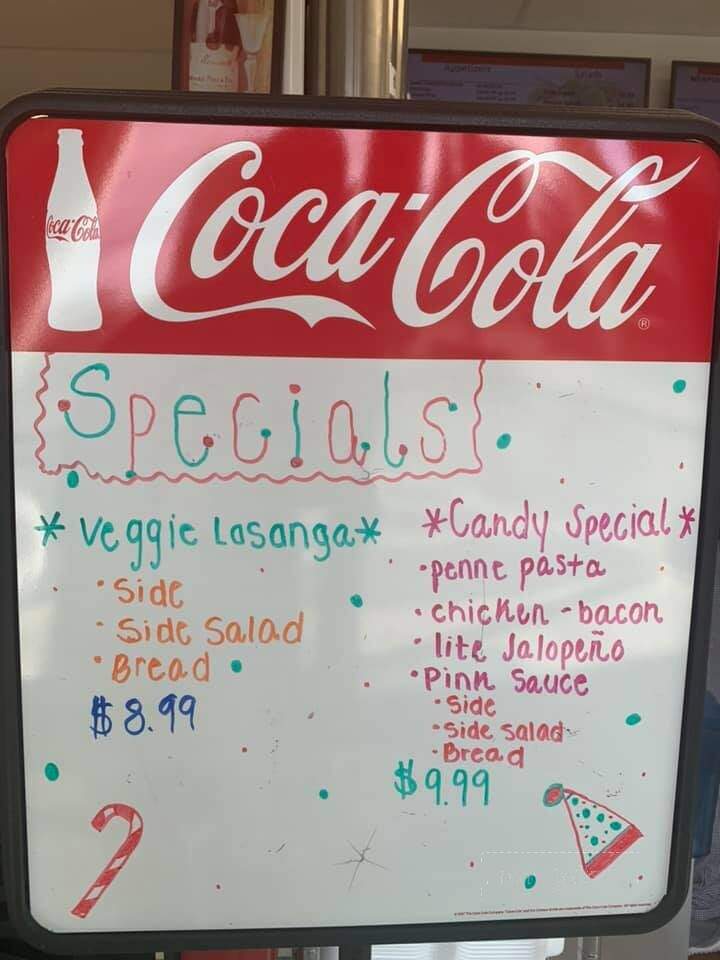 Coca-Cola
Coca-Cola ®
Specials
* Veggie Lasanga *
• Side
• Side Salad
• Bread
$8.99
* Candy Special *
• penne pasta
• chicken - bacon
• lite Jalopeño
• Pink Sauce
• Side
• Side salad
• Bread
$9.99